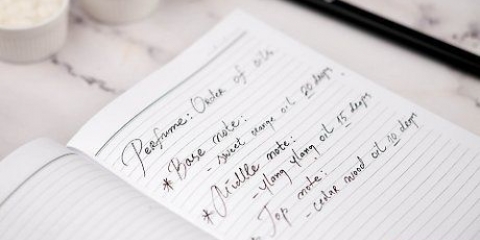 Perfume: Order of oils
* Base note:
- sweet orange oil 20 drops
* Middle note:
- ylang ylang oil 15 drops
* Top note:
- cedar wood oil 10 drops